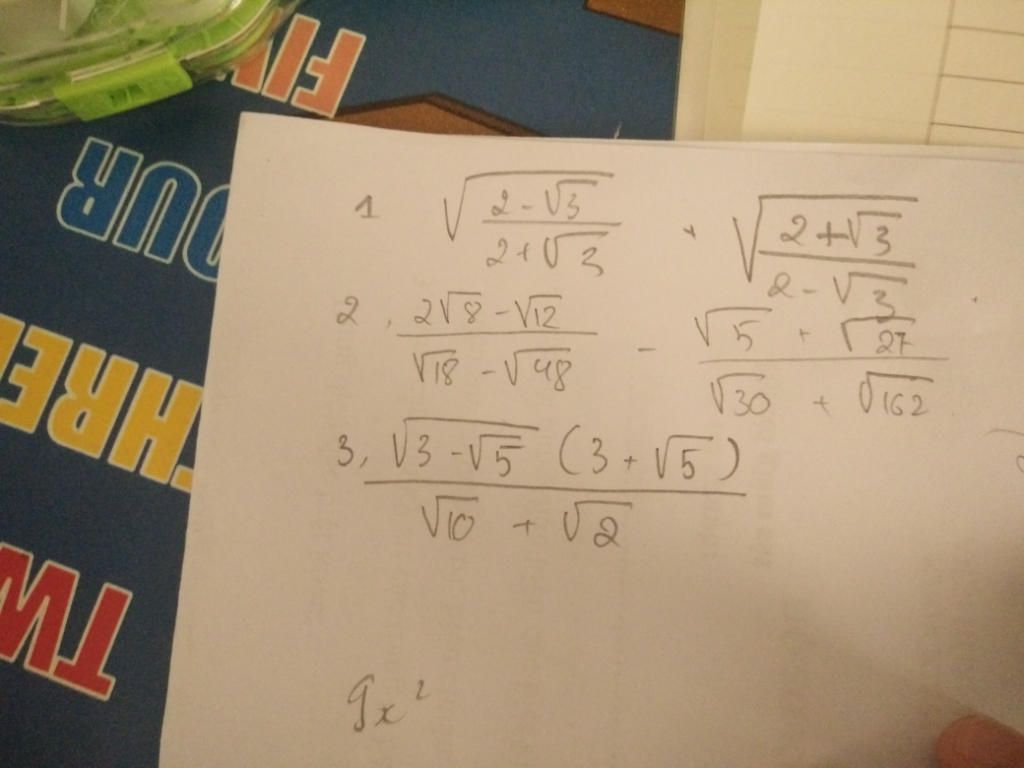 FIV
OUR
THREE
TW
1 √((2-√3)/(2+√3)) + √((2+√3)/(2-√3))
2, (2√8-√12)/(√18-√48) - (√5+√27)/(√30+√162)
3, (√(3-√5) (3+√5))/(√10+√2)
9x²